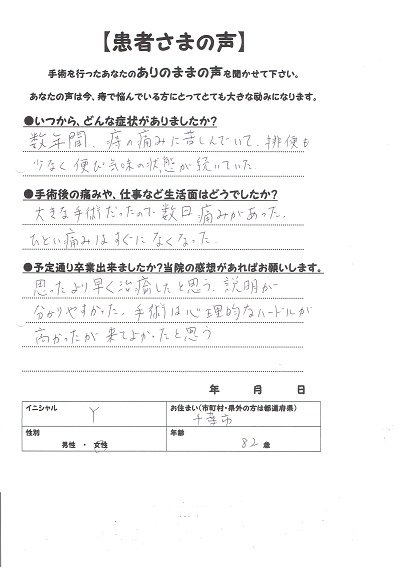 【患者さまの声】
手術を行ったあなたのありのままの声を聞かせて下さい。
あなたの声は今、痔で悩んでいる方にとってとても大きな励みになります。
●いつから、どんな症状がありましたか?
数年間、痔の痛みに苦しんでいて、排便も
少なく便ぴ気味の状態が続いていた。
●手術後の痛みや、仕事など生活面はどうでしたか?
大きな手術だったので数日痛みがあった。
ひどい痛みはすぐになくなった。
●予定通り卒業出来ましたか?当院の感想があればお願いします。
思ったより早く治癒したと思う。説明が
分かりやすかった。手術は心理的なハードルが
高かったが来てよかったと思う
年 月 日
イニシャル Y
お住まい(市町村・県外の方は都道府県)
千葉市
性別
男性 ・ 女性
年齢
82 歳